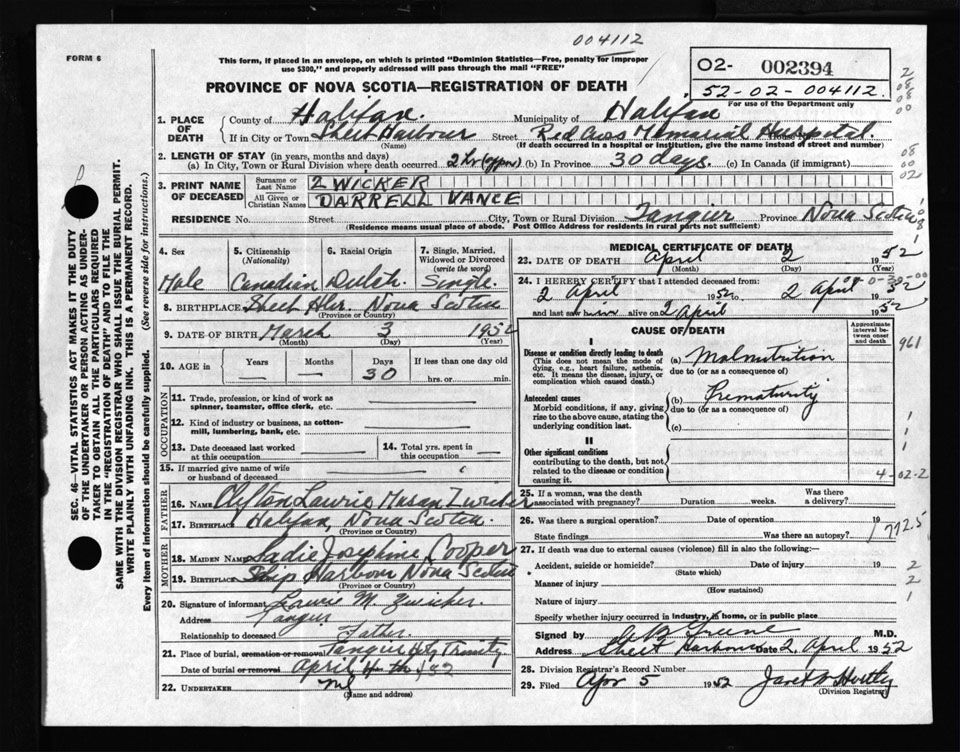 004112
FORM 6
This form, if placed in an envelope, on which is printed "Dominion Statistics—Free, penalty for improper
use $300," and properly addressed will pass through the mail "FREE"
02- 002394
52-02-004112.
For use of the Department only
PROVINCE OF NOVA SCOTIA—REGISTRATION OF DEATH
1. PLACE OF DEATH
County of Halifax. Municipality of Halifax
If in City or Town Sheet Harbour Street Red Cross Memorial Hospital.
(Name) (If death occurred in a hospital or institution, give the name instead of street and number)
2. LENGTH OF STAY (in years, months and days)
(a) In City, Town or Rural Division where death occurred 2 hr (appr) (b) In Province 30 days (c) In Canada (if immigrant)
3. PRINT NAME OF DECEASED
Surname or Last Name ZWICKER
All Given or Christian Names DARRELL VANCE
RESIDENCE No. Street City, Town or Rural Division Tangier Province Nova Scotia
(Residence means usual place of abode. Post Office Address for residents in rural parts not sufficient)
4. Sex Male
5. Citizenship (Nationality) Canadian
6. Racial Origin Dutch
7. Single, Married, Widowed or Divorced (write the word) Single.
8. BIRTHPLACE Sheet Hbr. Nova Scotia
(Province or Country)
9. DATE OF BIRTH March 3 1952
(Month) (Day) (Year)
10. AGE in Years — Months — Days 30 If less than one day old hrs. or min.
OCCUPATION
11. Trade, profession, or kind of work as
spinner, teamster, office clerk, etc.
12. Kind of industry or business, as cotton-
mill, lumbering, bank, etc.
13. Date deceased last worked
at this occupation
14. Total yrs. spent in
this occupation
15. If married give name of wife
or husband of deceased
FATHER
16. NAME Clyfton Laurie Mason Zwicker
17. BIRTHPLACE Halifax, Nova Scotia.
(Province or Country)
MOTHER
18. MAIDEN NAME Sadie Josephine Cooper
19. BIRTHPLACE Ship Harbour Nova Scotia
(Province or Country)
20. Signature of informant Laurie M. Zwicker.
Address Tangier
Relationship to deceased Father.
21. Place of burial, cremation or removal Tangier Holy Trinity.
Date of burial or removal April 4th /52
22. UNDERTAKER
(Name and address)
MEDICAL CERTIFICATE OF DEATH
23. DATE OF DEATH April 2 1952
(Month) (Day) (Year)
24. I HEREBY CERTIFY that I attended deceased from:
2 April 1952 to 2 April 1952
and last saw him alive on 2 April 1952
CAUSE OF DEATH
Approximate interval between onset and death
I
Disease or condition directly leading to death
(This does not mean the mode of
dying, e.g., heart failure, asthenia,
etc. It means the disease, injury, or
complication which caused death.)
(a) Malnutrition
due to (or as a consequence of)
Antecedent causes
Morbid conditions, if any, giving
rise to the above cause, stating the
underlying condition last.
(b) Prematurity
due to (or as a consequence of)
(c)
II
Other significant conditions
contributing to the death, but not
related to the disease or condition
causing it.
25. If a woman, was the death
associated with pregnancy? Duration weeks. Was there a delivery?
26. Was there a surgical operation? Date of operation 19
State findings Was there an autopsy?
27. If death was due to external causes (violence) fill in also the following:—
Accident, suicide or homicide? Date of injury 19
(State which)
Manner of injury
(How sustained)
Nature of injury
Specify whether injury occurred in industry, in home, or in public place
Signed by M.D.
Address Sheet Harbour Date 2 April 1952
28. Division Registrar's Record Number
29. Filed Apr 5 1952
(Division Registrar)
SEC. 46—VITAL STATISTICS ACT MAKES IT THE DUTY
OF THE UNDERTAKER OR PERSON ACTING AS UNDER-
TAKER TO OBTAIN ALL THE PARTICULARS REQUIRED
IN THE "REGISTRATION OF DEATH" AND TO FILE THE
SAME WITH THE DIVISION REGISTRAR WHO SHALL ISSUE THE BURIAL PERMIT.
WRITE PLAINLY WITH UNFADING INK. THIS IS A PERMANENT RECORD.
Every item of information should be carefully supplied. (See reverse side for instructions.)
961
772.5